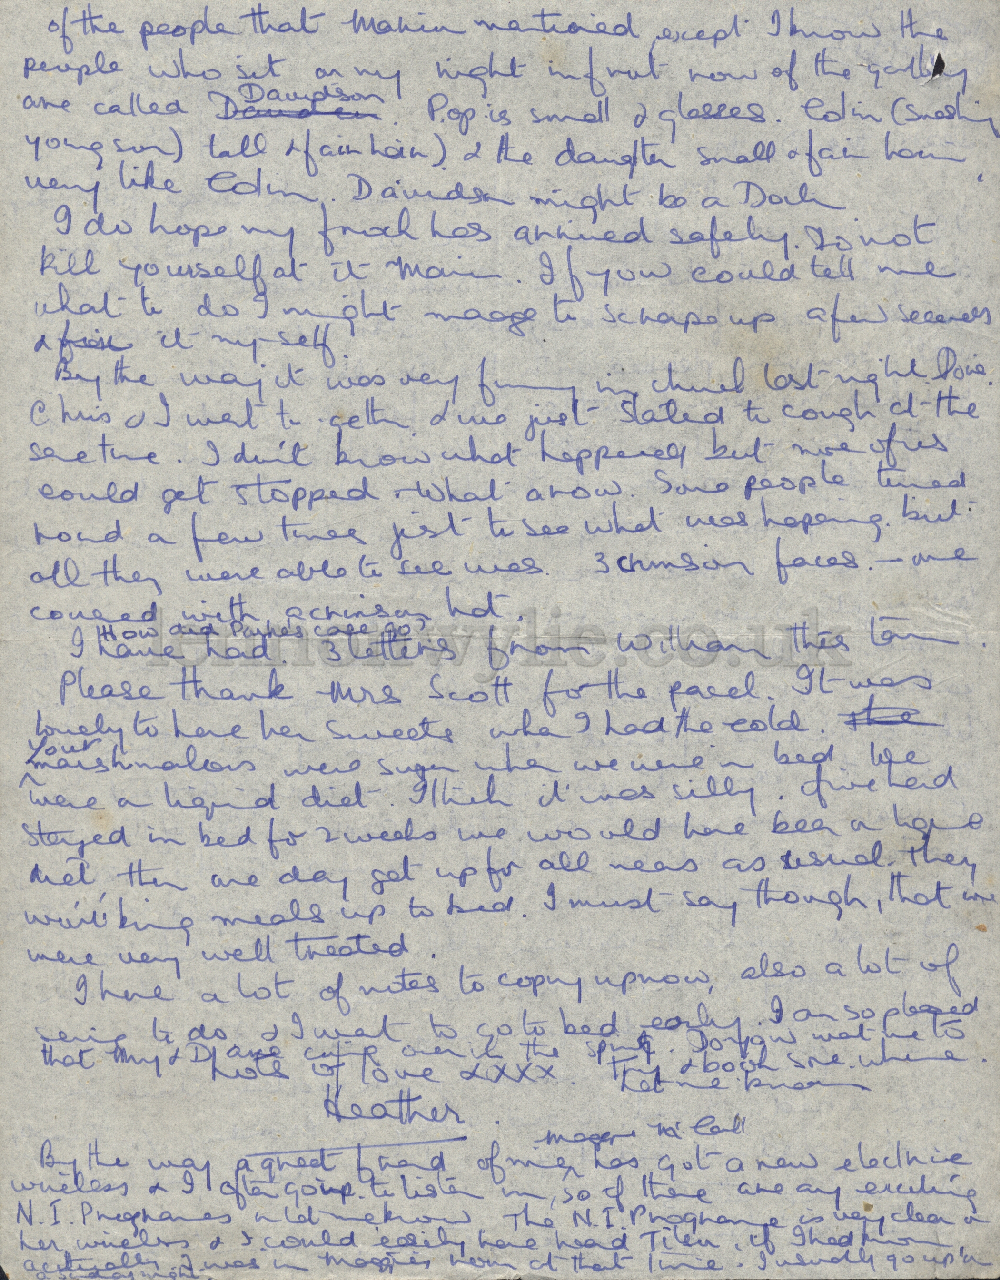 of the people that Marion mentioned except I know the
people who sit on my right in front row of the gallery
are called Davidson. Pop is small & glasses. Colin (
young son) tall & fair hair) & the daughter small & fair hair
very like Colin. Davidson might be a Doctor
I do hope my frock has arrived safely. Do not
kill yourself at it Marion. If you could tell me
what to do I might manage to scrape up a few seconds
& fix it my-self.
By the way it was very funny in church last night.
Chris & I went to-gether & we just started to cough at the
same time. I don't know what happened but none of us
could get stopped. What a row. Some people turned
round a few times just to see what was happening, but
all they were able to see was 3 crimson faces. - one
covered with a crimson hat.
How did Parkes case go?
I have had 3 letters from William this term.
Please thank Mrs Scott for the parcel. It was
lovely to have her sweets when I had the cold. the
Your
marshmallows were super when we were in bed. We
were on liquid diet. I think it was silly. If we had
stayed in bed for 2 weeks we would have been on liquid
diet, then one day get up for all meals as usual. They
bring meals up to bed. I must say though, that we
were very well treated.
I have a lot of notes to copy up now, also a lot of
sewing to do & I want to go to bed early. I am so pleased
that Mry & D are coming over in the spring. Do you want me to
Try & book some where.
Lots of love & XXXX. Let me know
Heather.
Maggie Mc Call
By the way a great friend of mine has got a new electric
wireless & I often go up to listen in, so if there are any exciting
N.I. Programmes let me know. The N.I. Programme is very clear on
her wireless & I could easily have heard if I had known
actually I was in Maggie's room at that time. I usually go up on
a Sunday night.